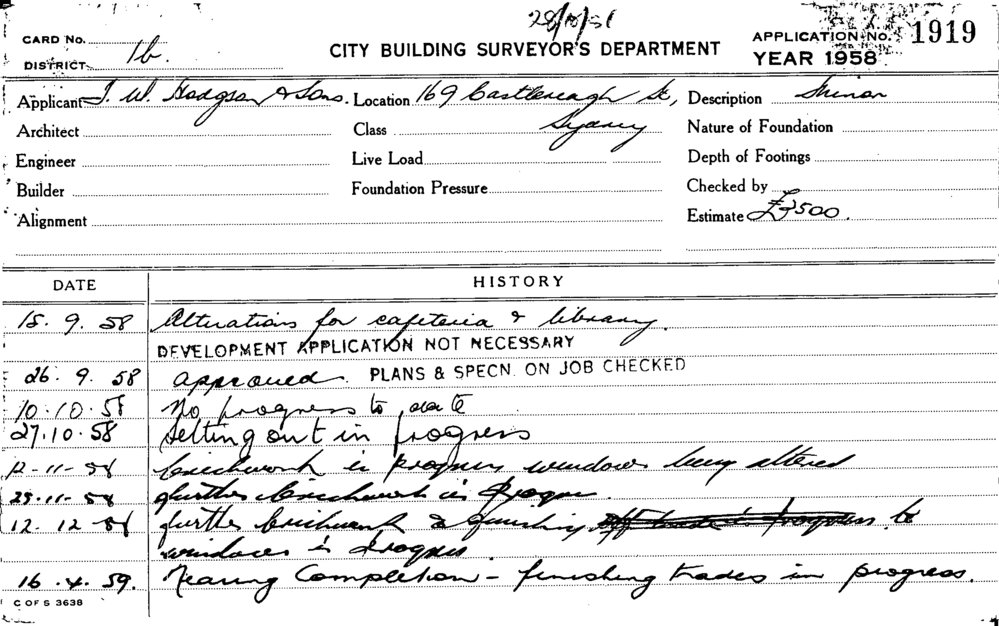 28/8/51
CARD No. CITY BUILDING SURVEYOR'S DEPARTMENT APPLICATION No. 1919
DISTRICT 1b. YEAR 1958
Applicant T. W. Hodgson & Sons. Location 169 Castlereagh St, Description Minor
Architect Class Sydney Nature of Foundation
Engineer Live Load Depth of Footings
Builder Foundation Pressure Checked by
Alignment Estimate £3500.
DATE HISTORY
15. 9. 58 Alterations for cafeteria & library.
DEVELOPMENT APPLICATION NOT NECESSARY
26. 9. 58 approved. PLANS & SPECN. ON JOB CHECKED
10. 10. 58 No progress to date
27. 10. 58 Setting out in progress
12-11-58 brickwork in progress windows being altered
25-11-58 further brickwork in progress.
12. 12-58 further brickwork & finishing off trades in progress to
windows in progress.
16. 4. 59. Nearing Completion - finishing trades in progress.
C OF S 3638